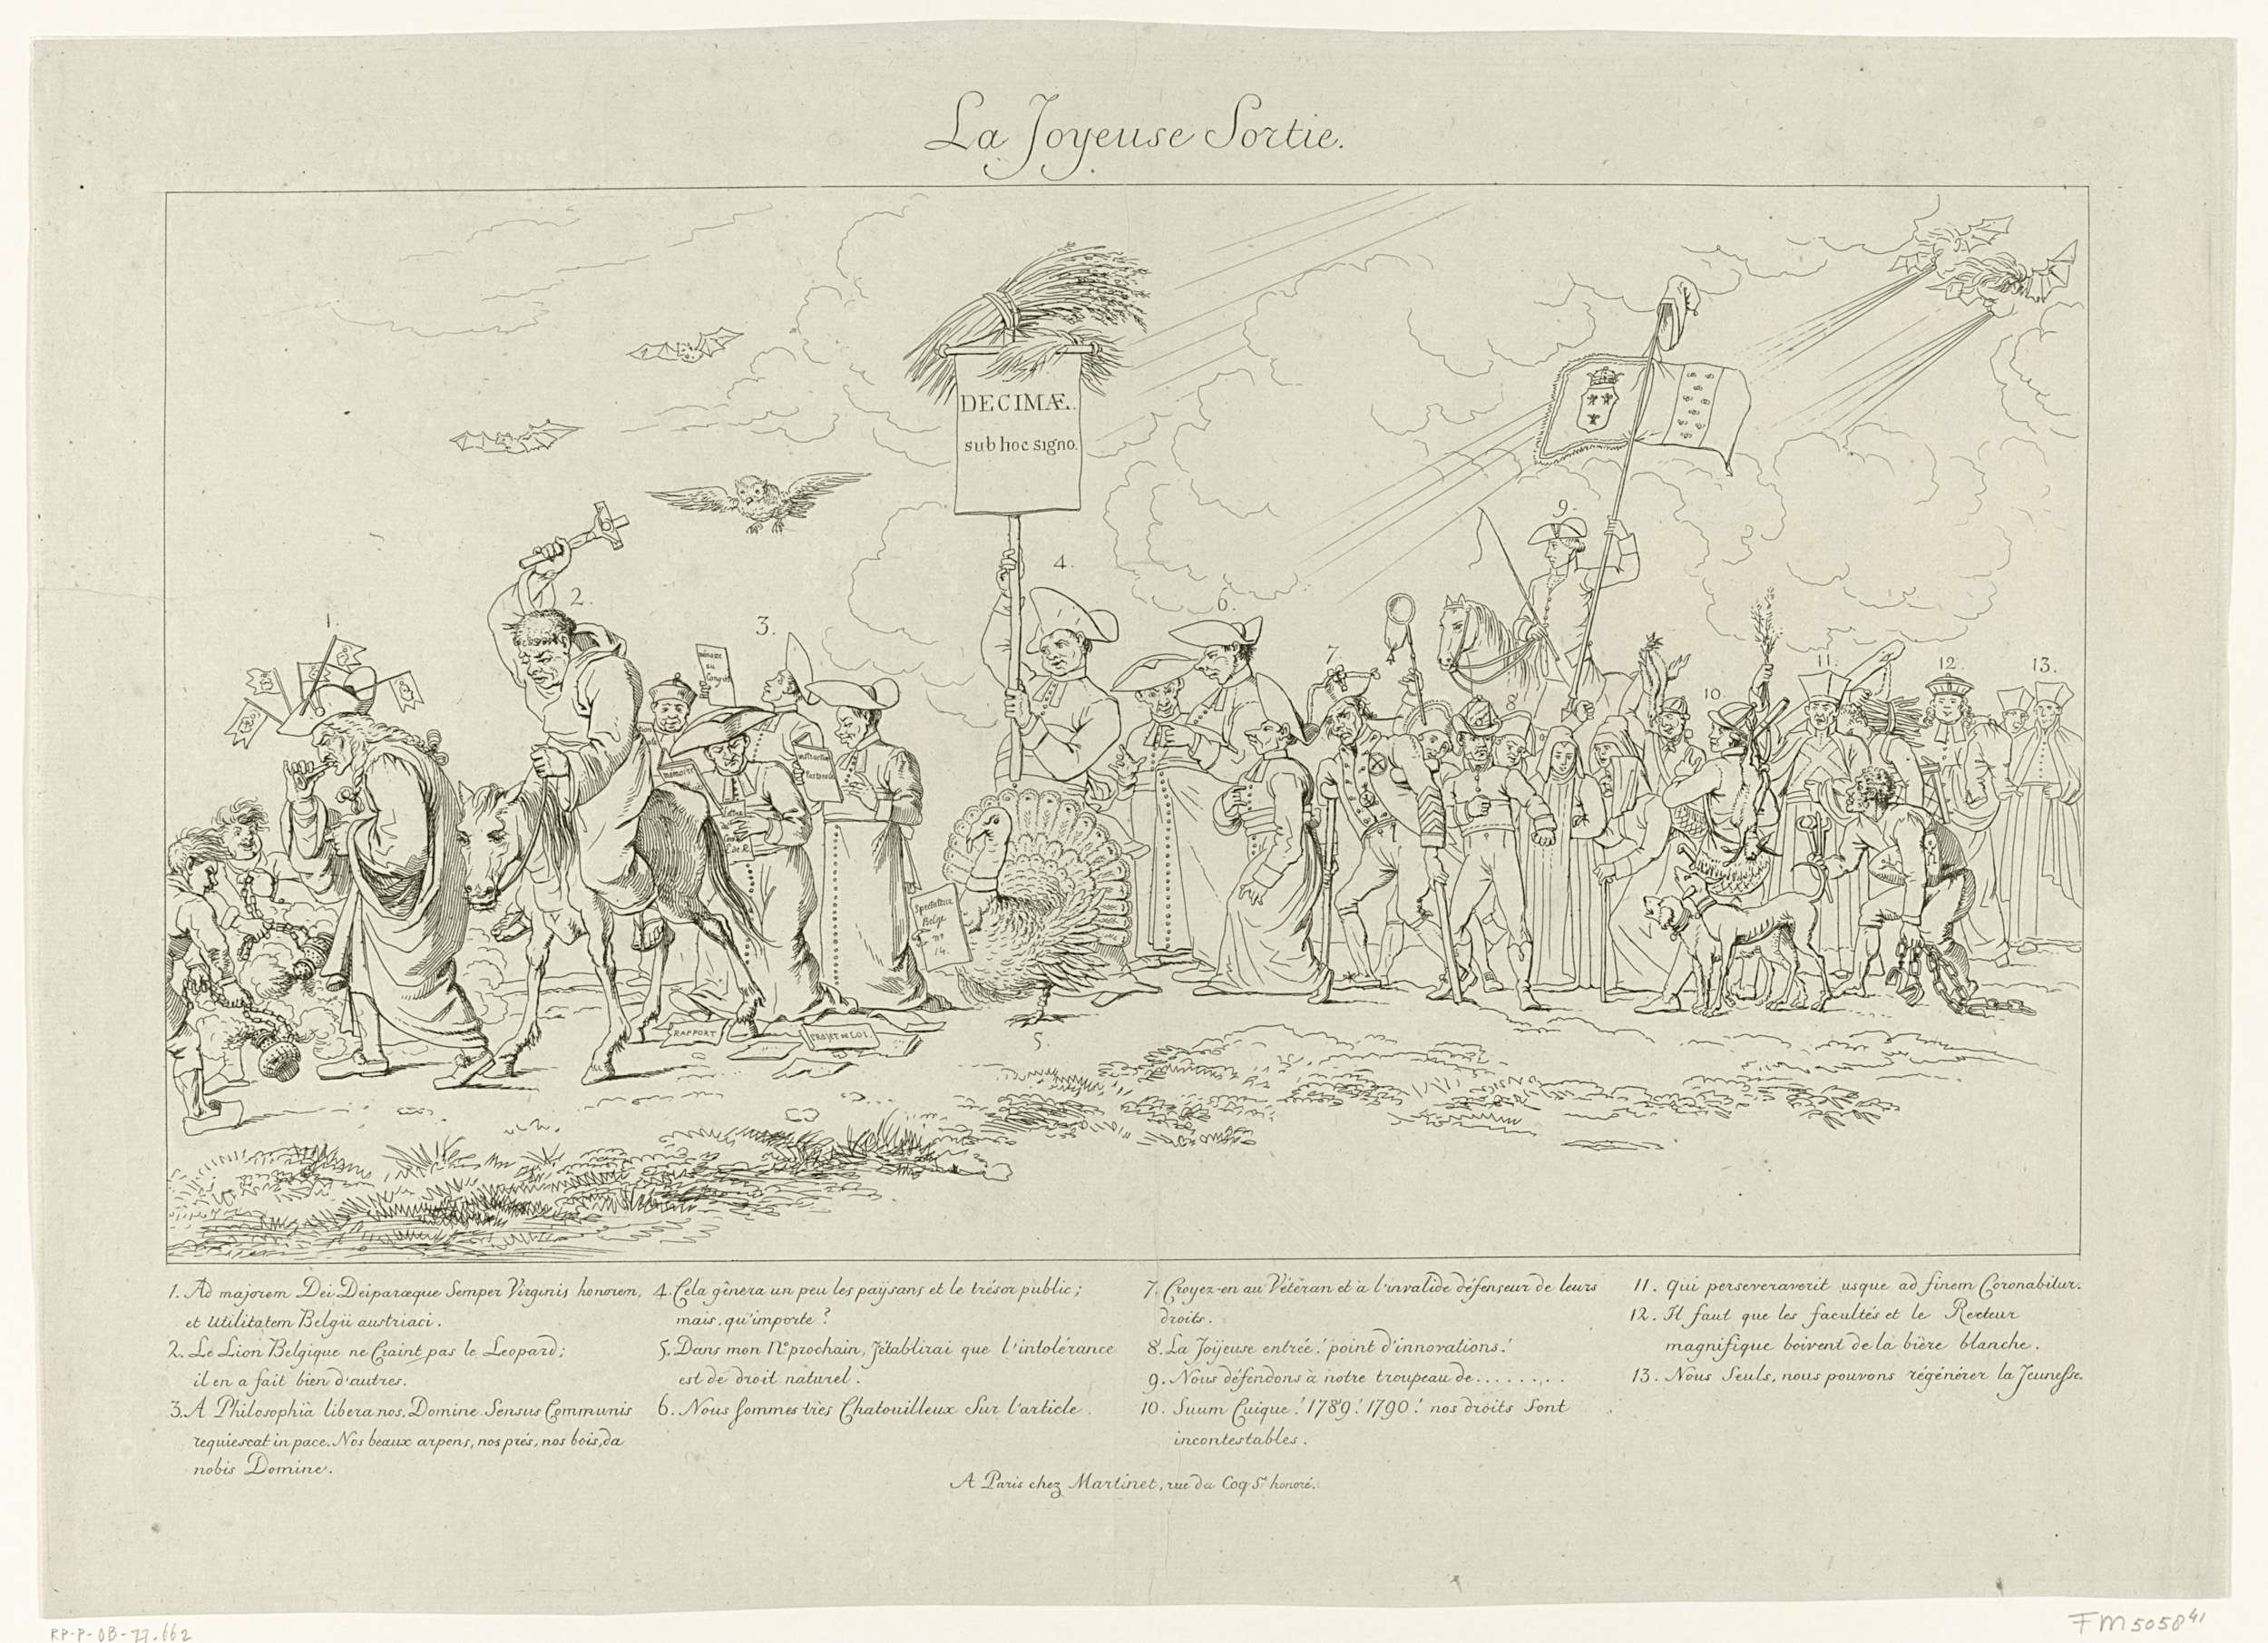 La Joyeuse Sortie.
DECIMÆ.
sub hoc signo.
1.
2.
3.
4.
5.
6.
7.
8.
9.
10.
11.
12.
13.
mémoire
au
Congrès
mémoire
instruction
Pastorale
Spectateur
Belge
Nº
14.
RAPPORT
PROJET DE LOI.
1. Ad majorem Dei Deiparæque Semper Virginis honorem,
et Utilitatem Belgii austriaci.
2. Le Lion Belgique ne Craint pas le Leopard;
il en a fait bien d'autres.
3. A Philosophiâ libera nos, Domine. Sensus Communis
requiescat in pace. Nos beaux arpens, nos prés, nos bois, da
nobis Domine.
4. Cela gênera un peu les paÿsans et le trésor public;
mais, qu'importe?
5. Dans mon Nº prochain, J'établirai que l'intolérance
est de droit naturel.
6. Nous sommes très Chatouilleux sur l'article.
7. Croyez-en au Vétéran et à l'invalide défenseur de leurs
droits.
8. La Joÿeuse entrée! point d'innovations!
9. Nous défendons à notre troupeau de.........
10. Suum Cuique! 1789! 1790! nos droits sont
incontestables.
11. Qui perseveraverit usque ad finem Coronabitur.
12. Il faut que les facultés et le Recteur
magnifique boivent de la bière blanche.
13. Nous Seuls, nous pouvons régénérer la Jeunesse.
A Paris chez Martinet, rue du Coq St. honoré.
RP-P-OB-77.662
FM 5058 41